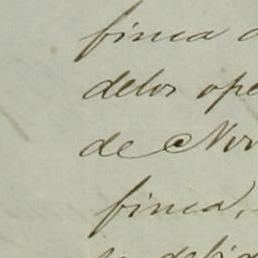 finca
delos ope
de Nov
finca,